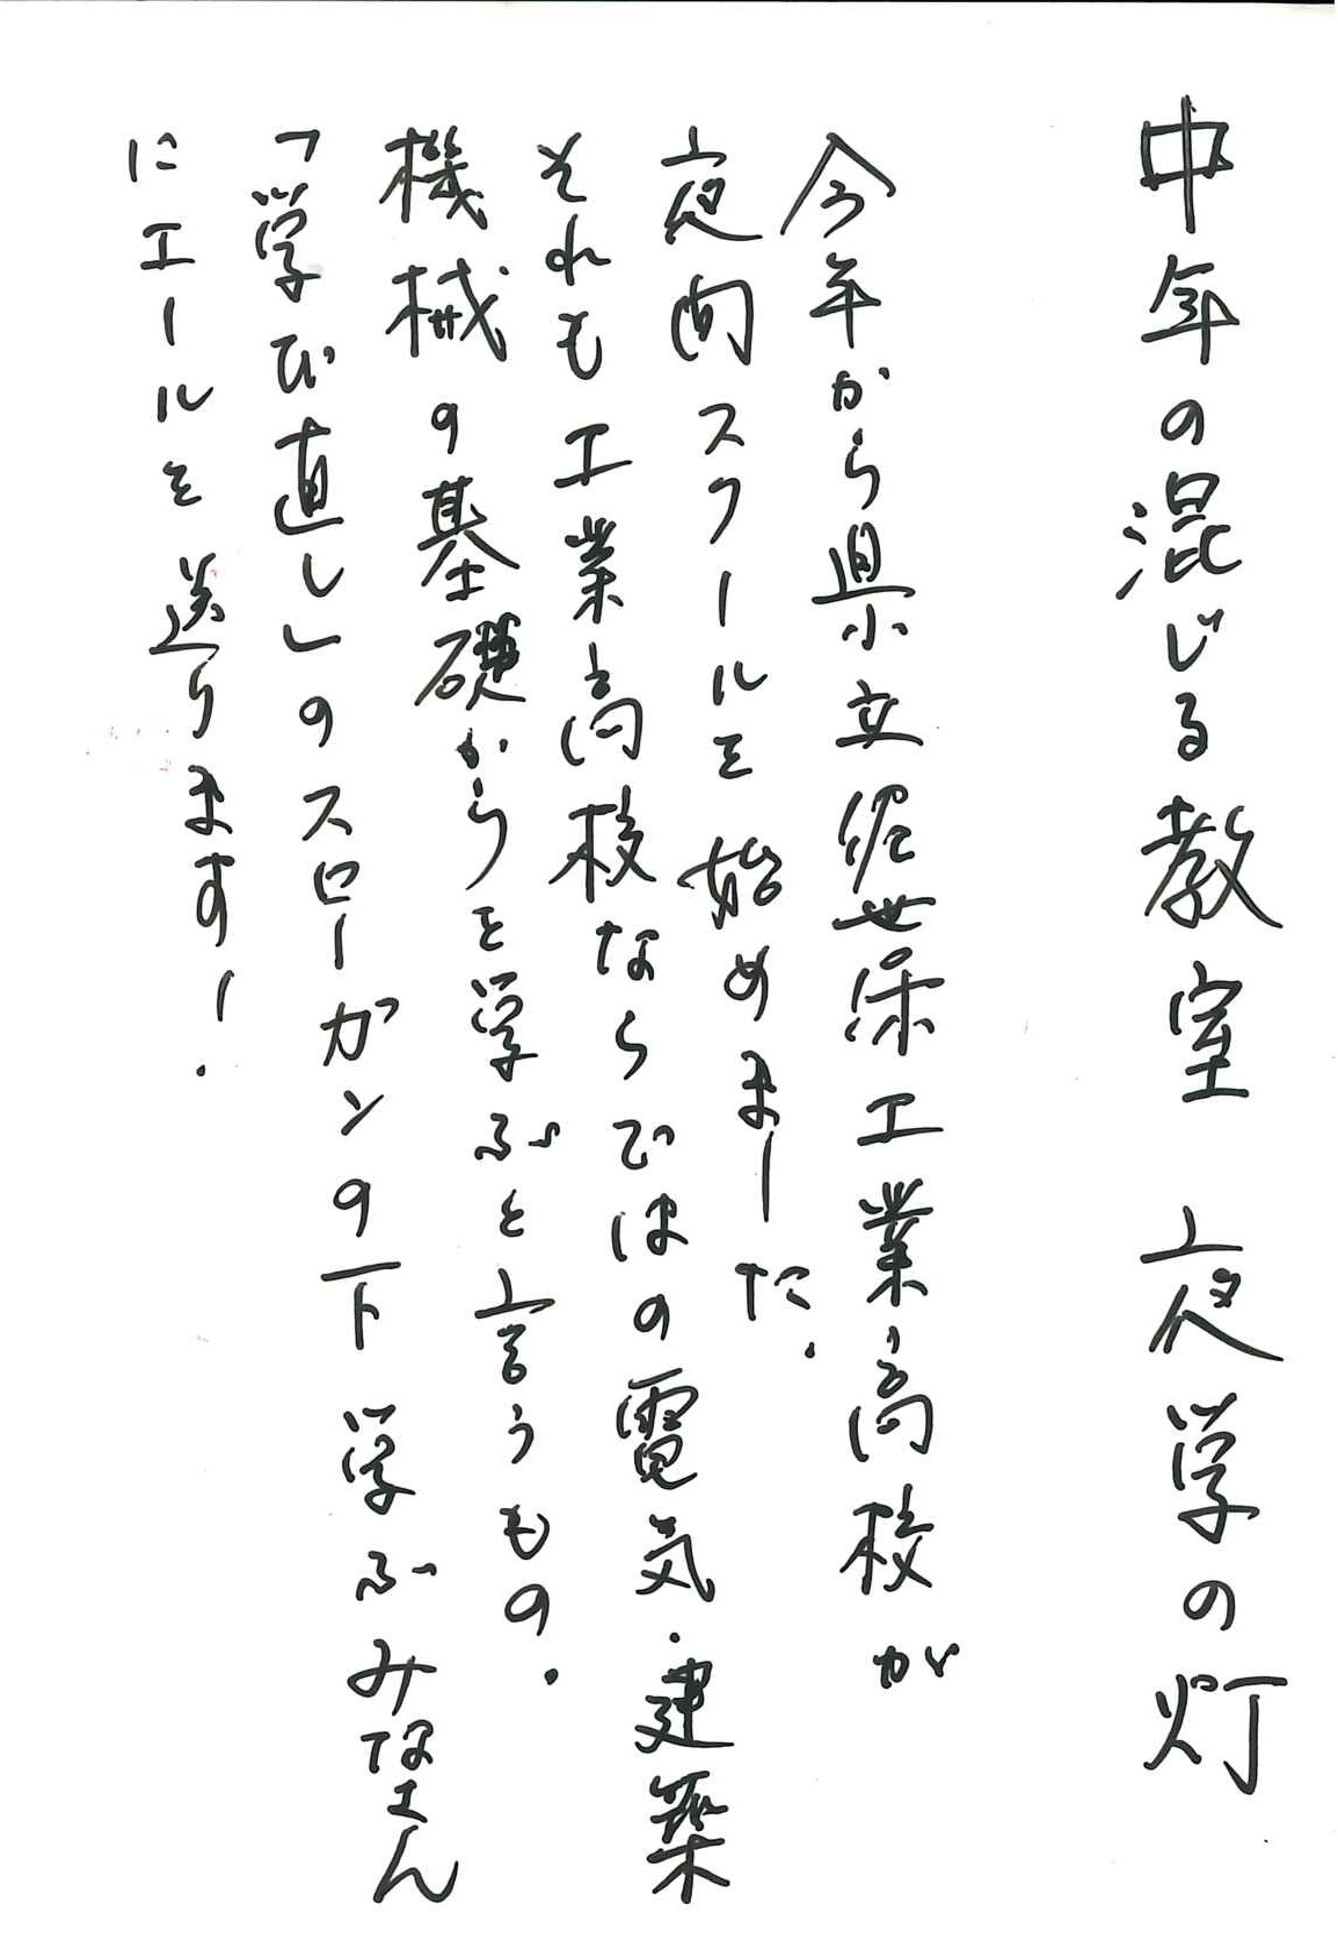 中年の混じる教室 夜学の灯
今年から県立佐世保工業高校が
夜間スクールを始めました.
それも工業高校ならではの電気・建築
機械の基礎からを学ぶと言うもの.
「学び直し」のスローガンの下 学ぶみなさん
にエールを送ります!